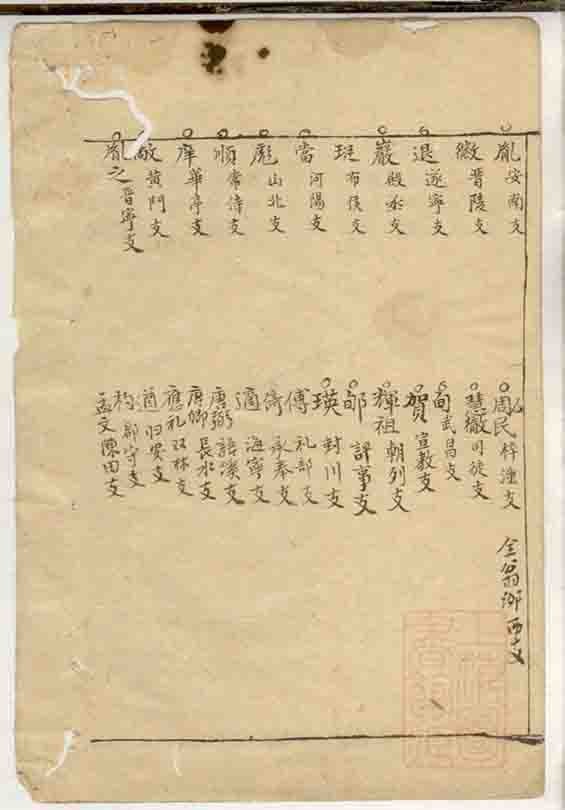 胤安南支
微晋陵支
退遂寧支
巖殿丞支
珽布侯支
當河陽支
彪山北支
順常侍支
庠華亭支
敵黄門支
胤之晋寧支
周民梓潼支
慧徽司徒支
甸武昌支
賀宣教支
輝祖朝列支
郇評事支
瑛對川支
傅礼部支
倚承奉支
適海寧支
唐弼語溪支
唐卿長水支
應礼双林支
酋归安支
郡守支
孟文陳田支
全翁鄉西支